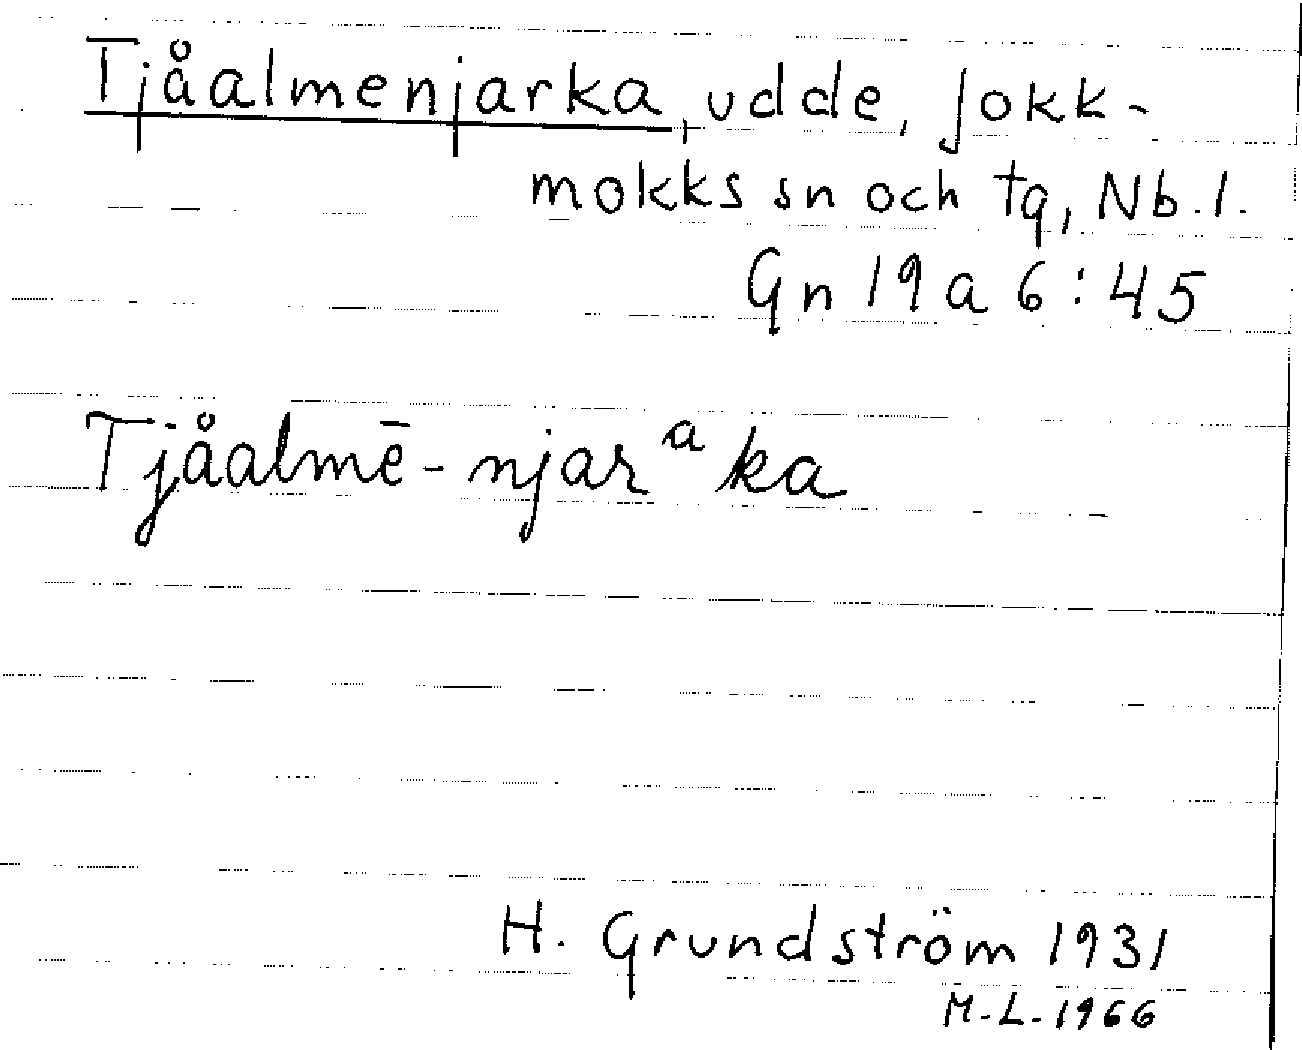 Tjåalmenjarka, udde, Jokk-
mokks sn och tg, Nb.l.
Gn 19 a 6:45
Tjåalmē-njarᵃka
H. Grundström 1931
M-L-1966